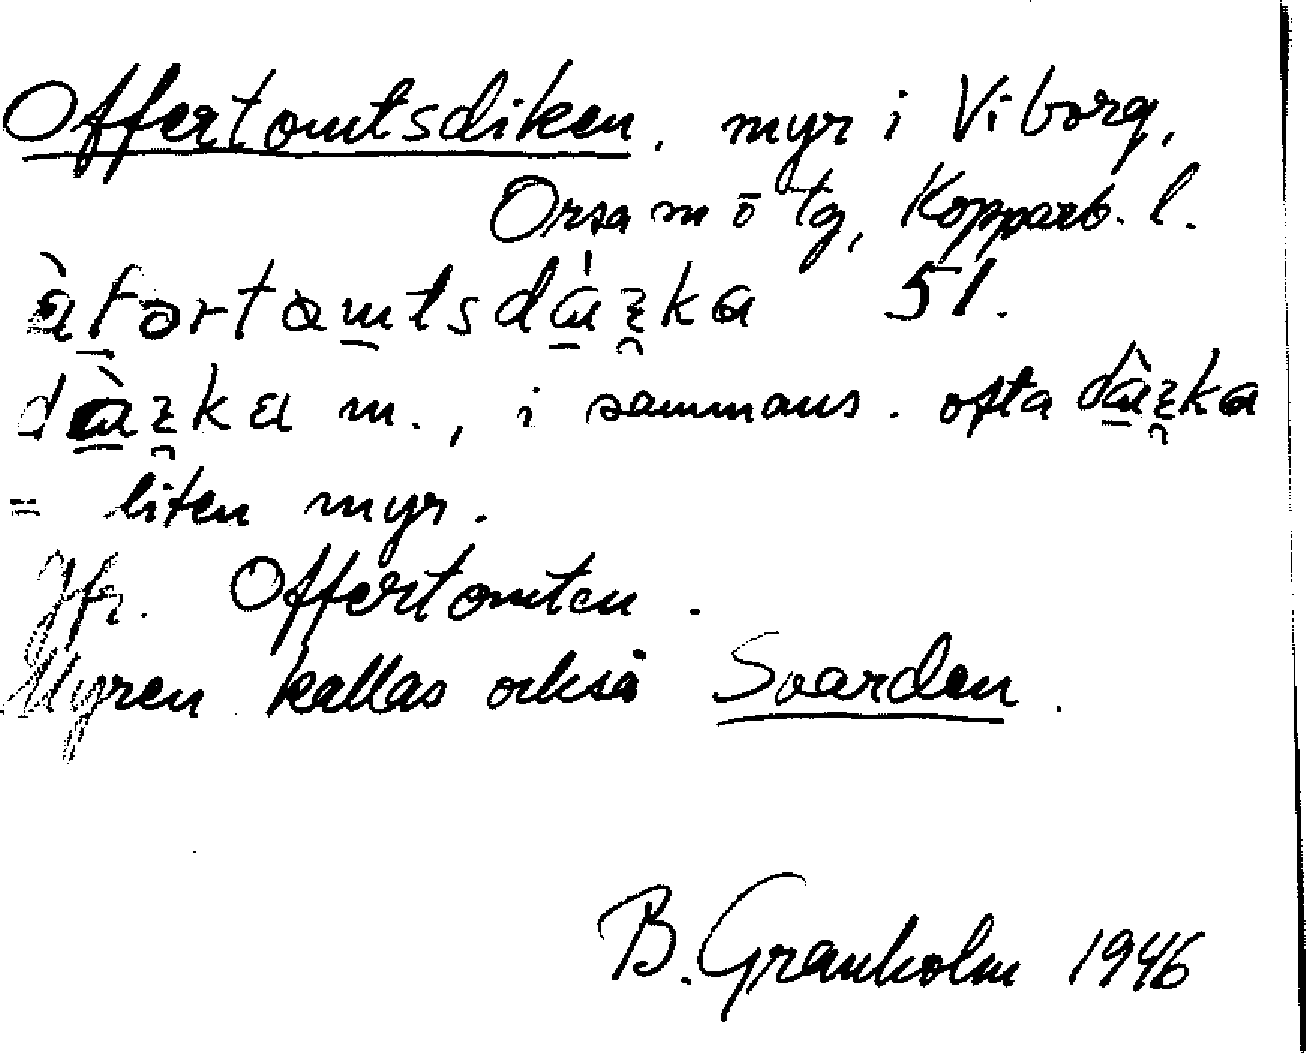 Offertomtsdiken. myr i Viborg,
Orsa m ō tg, Kopparb. l.
51.
m., i sammans. ofta
= liten myr.
Jfr. Offertomten.
Myren kallas också Svarden.
B. Granholm 1946